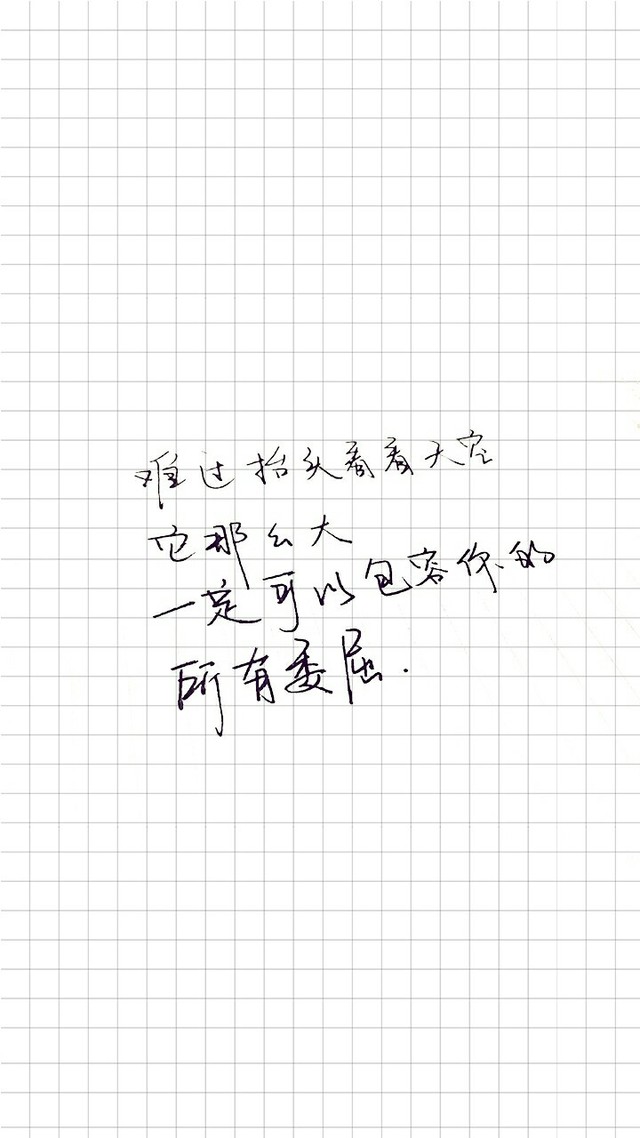 难过抬头看看天空
它那么大
一定可以包容你的
所有委屈.